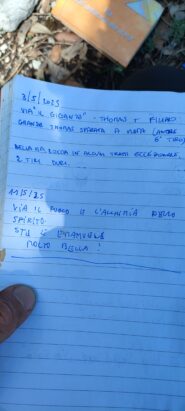 3/5/2025
VIA "IL GIGANTE" - THOMAS T FILIPPO
GRANDE THOMAS SPARATA A VISTA (ANCHE
6° TIRO)
BELLA MA ROCCIA IN ALCUNI TRATTI ECCEZIONALE
2 TIRI DURI...
11/5/25
VIA IL FUOCO E L'ALCHIMIA DELLO
SPIRITO.
STE E EMANUELE
MOLTO BELLA!